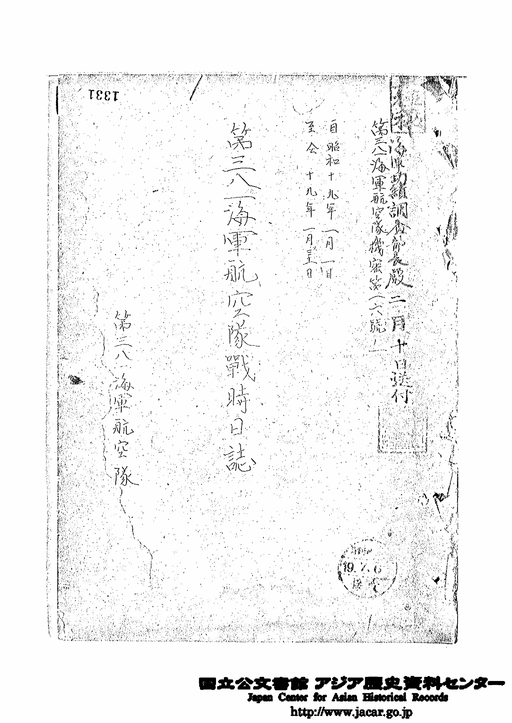 1331
海軍功績調査部長殿 二月十日送付
第三八一海軍航空隊機密第一六號ノ一
自昭和十九年一月一日
至仝十九年一月三十一日
第三八一海軍航空隊戰時日誌
第三八一海軍航空隊
19.7.6
国立公文書館 アジア歴史資料センター
Japan Center for Asian Historical Records
http://www.jacar.go.jp